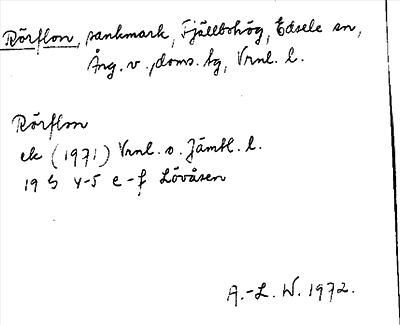 Rörflon, sankmark, Fjällbohög, Edsele sn,
Ång. v. doms. hg, Vrnl. l.
Rörflon
ek (1971) Vrnl. o. Jämtl. l.
19 G 4-5 e-f Lövåsen
A.-L. W. 1972.